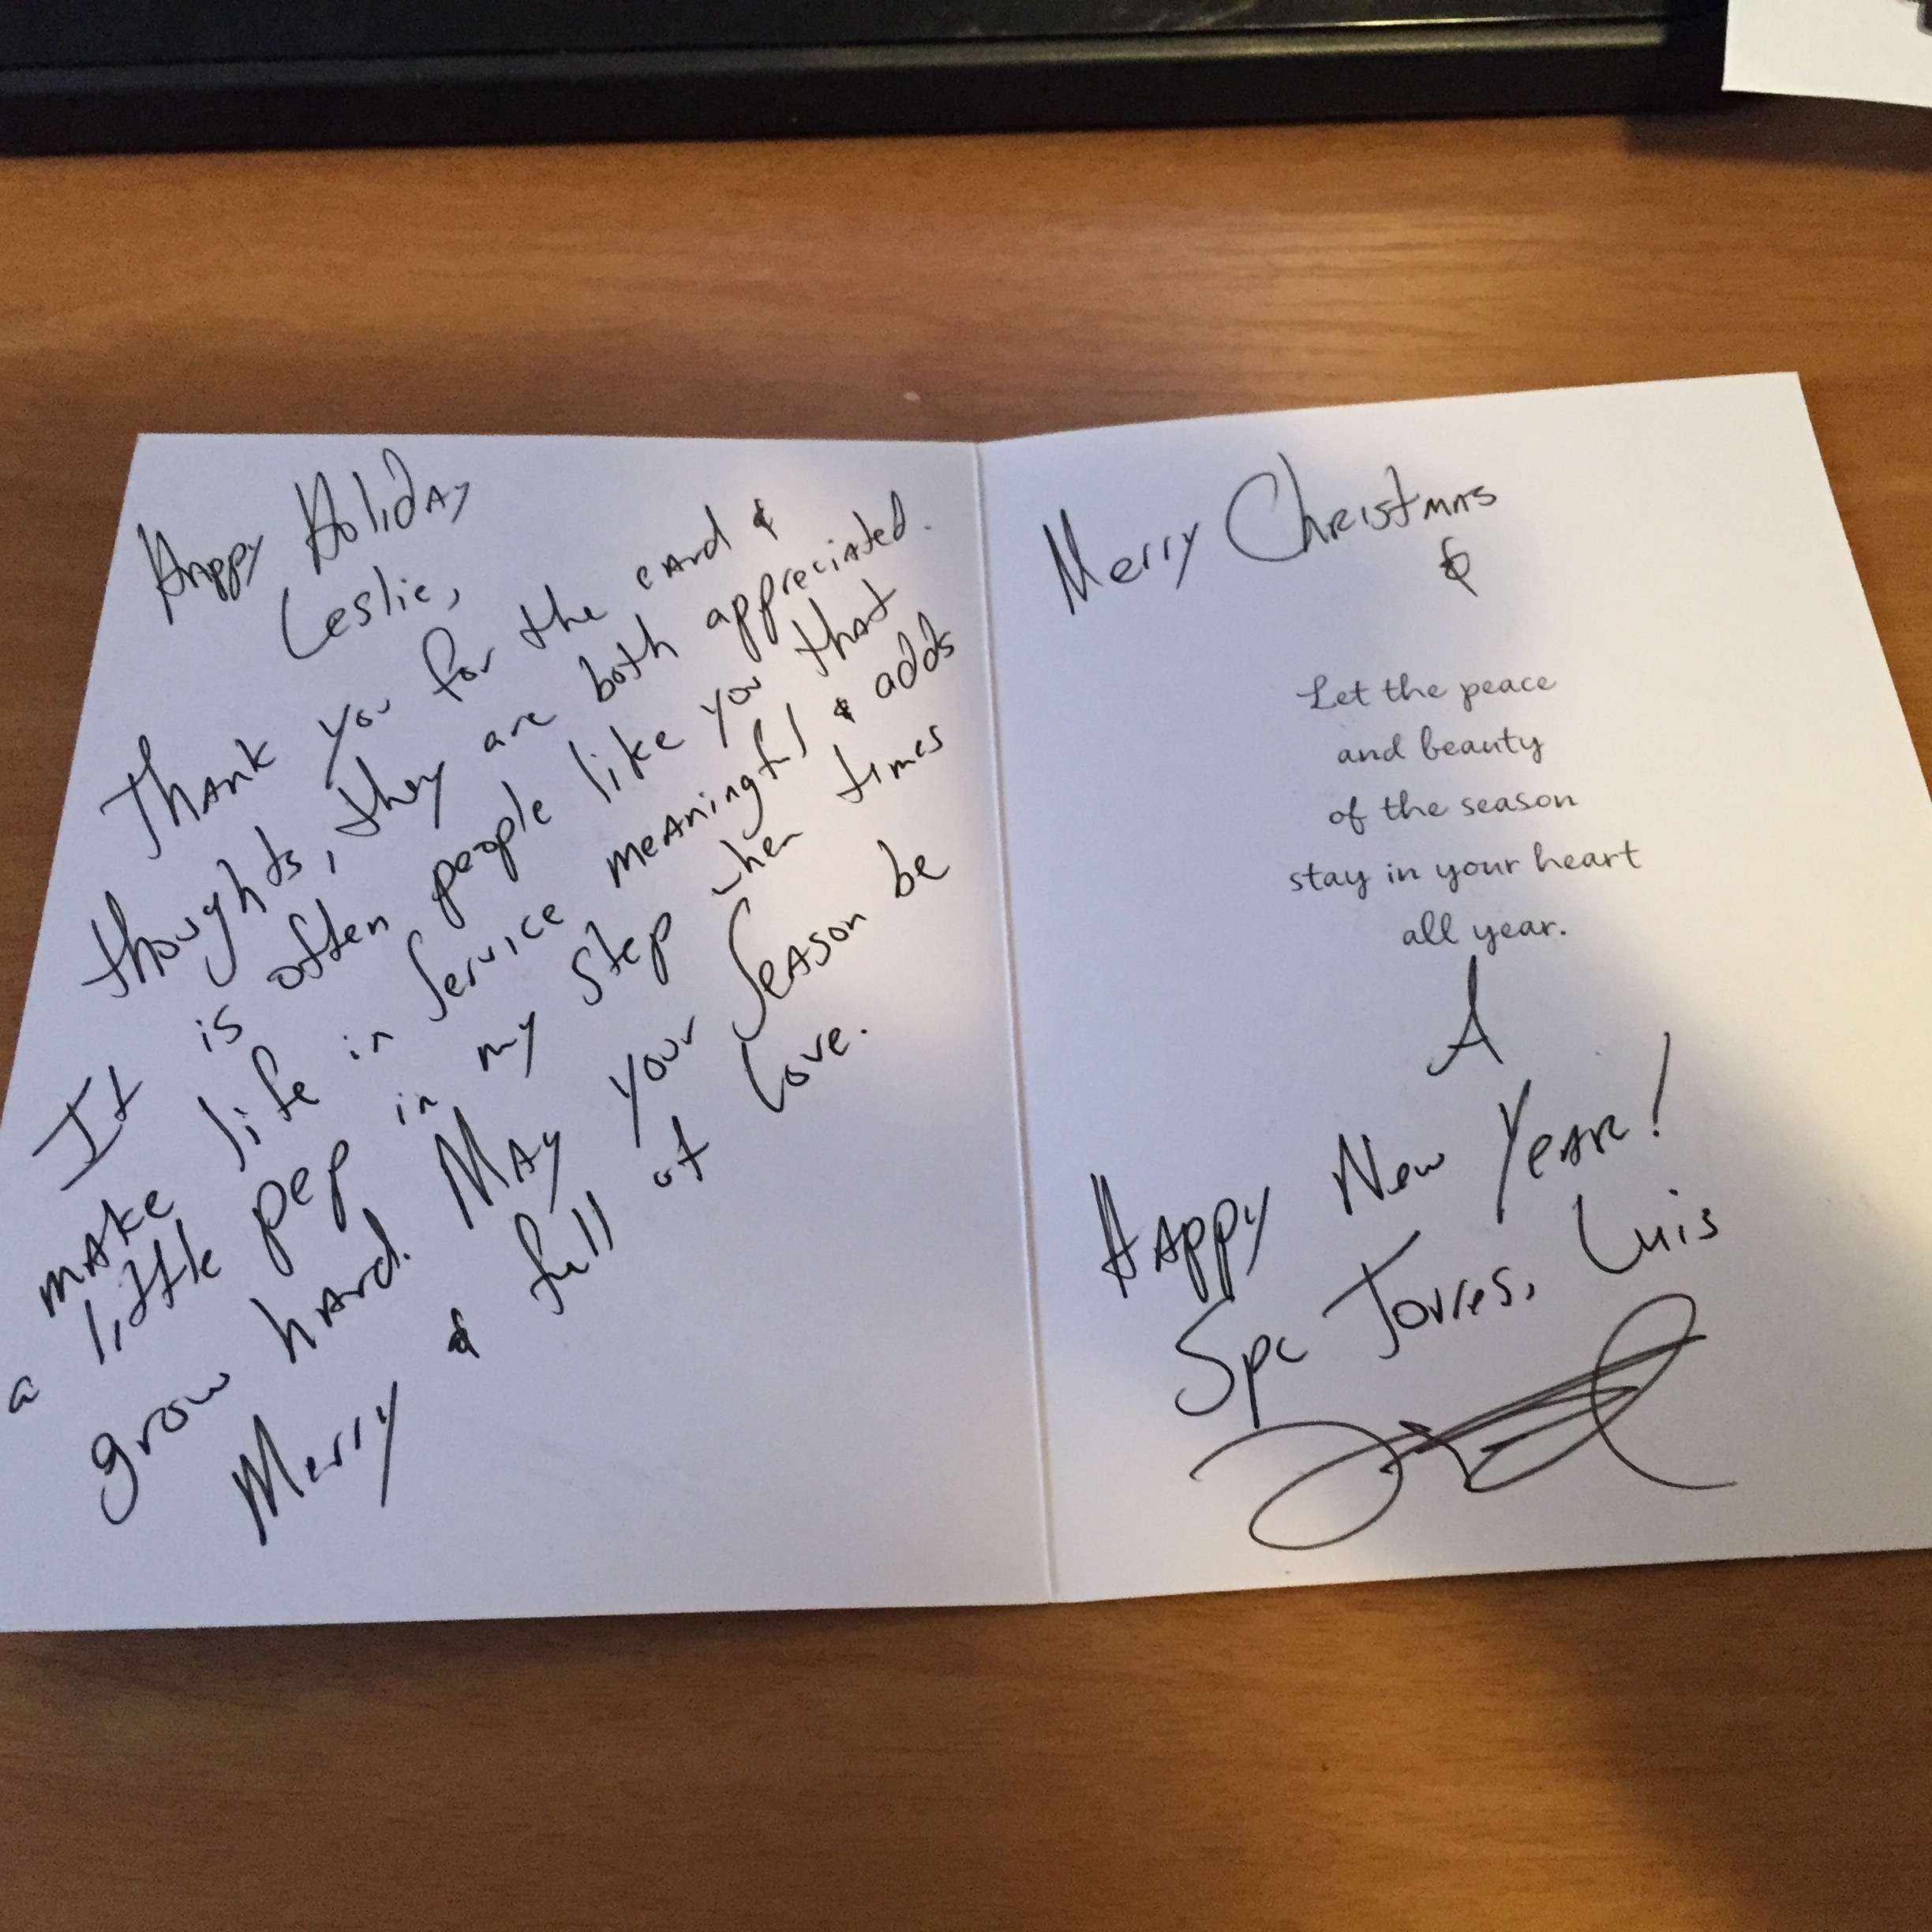 Happy Holiday
Leslie,
Thank you for the card &
thoughts, they are both appreciated.
It is often people like you that
make life in service meaningful & adds
a little pep in my step when times
grow hard. May your season be
Merry & full of love.
Merry Christmas
&
Let the peace
and beauty
of the season
stay in your heart
all year.
A
Happy New Year!
Spc Torres, Luis